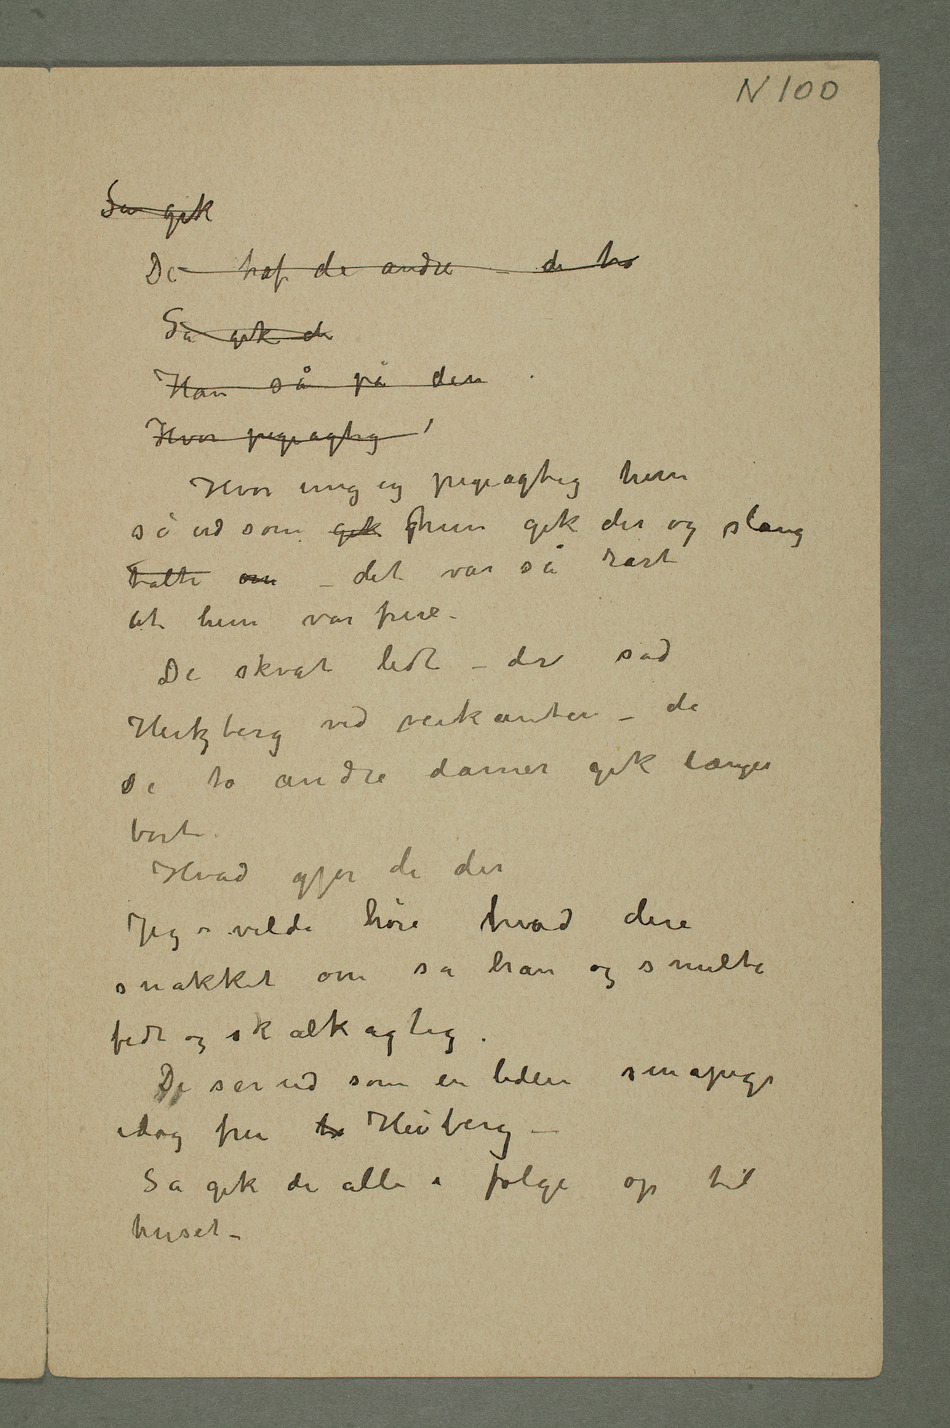 N 100
Så gik
De traf de andre – de to
Så gik de
Han så på den
Hvor pigeagtig!
Hvor ung og pigeagtig hun
så ud som gik hun gik der og slang
talte om – det var så rart
at hun var frue –
De skvat lidt – der sad
Heitzberg ved veikanten – de
de to andre damer gik længer
bort.
Hvad gjør de der
Jeg vilde høre hvad dere
snakket om sa han og smilte
fedt og skalkagtig.
De ser ud som en liden småpige
idag fru to Heiberg –
Sa gik de alle i følge op til
huset –